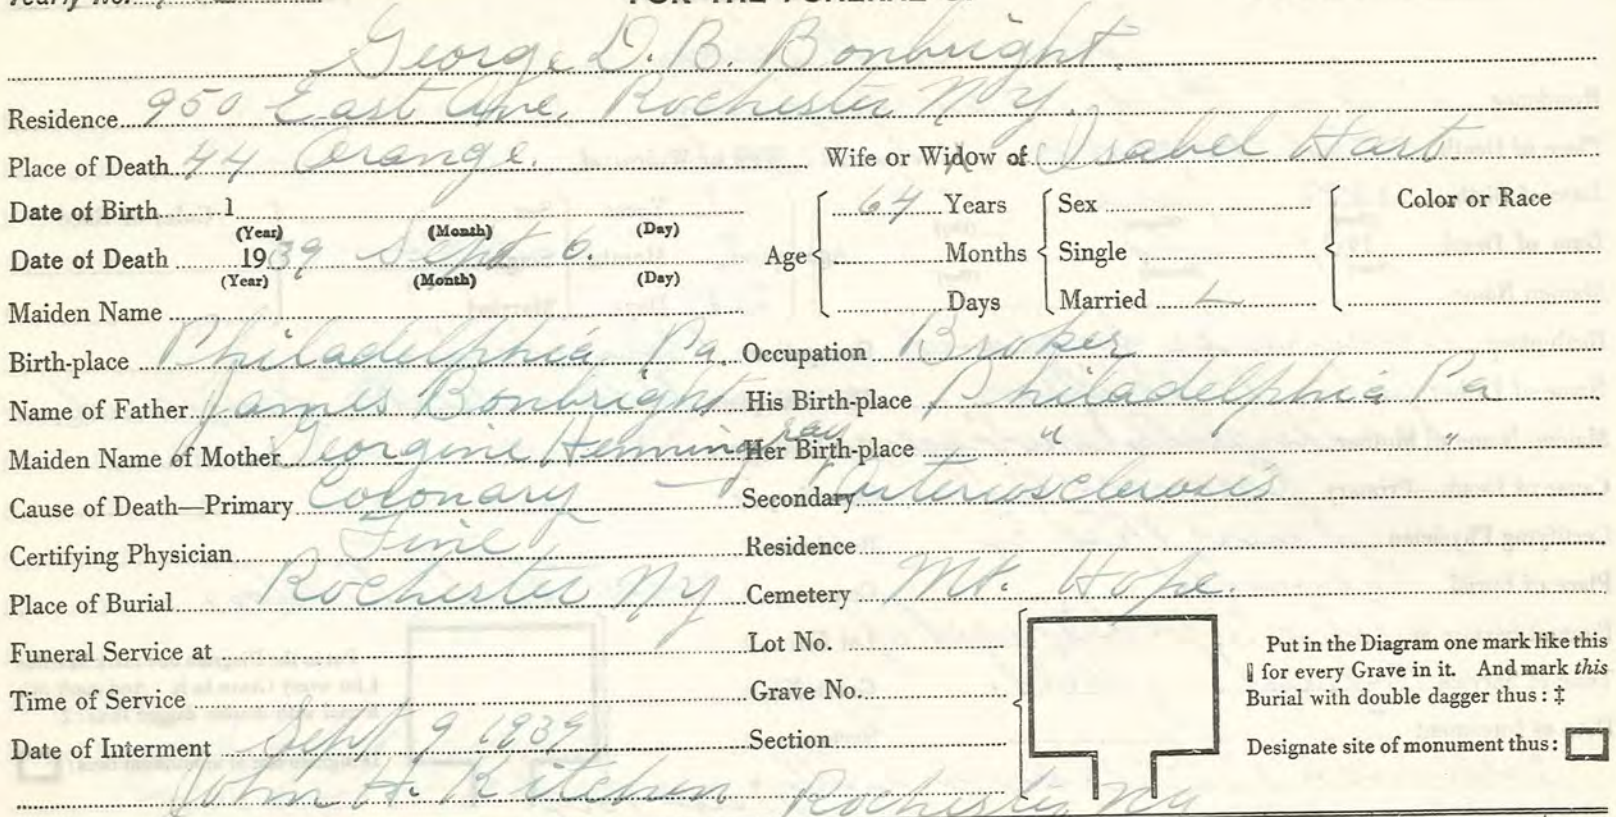 Yearly No.
FOR THE FUNERAL
George D. B. Bonbright.
Residence 950 East Ave, Rochester NY.
Place of Death 44 Orange. Wife or Widow of Isabel Hart
Date of Birth 1 Age 64 Years Sex Color or Race
(Year) (Month) (Day)
Date of Death 1939 Sept 6. Months Single
(Year) (Month) (Day)
Maiden Name Days Married
Birth-place Philadelphia Pa. Occupation Broker
Name of Father James Bonbright His Birth-place Philadelphia Pa
Maiden Name of Mother Georgine Hemming ray Her Birth-place " "
Cause of Death—Primary Coronary Secondary Arteriosclerosis
Certifying Physician Fine Residence
Place of Burial Rochester NY Cemetery Mt. Hope.
Funeral Service at Lot No.
Time of Service Grave No.
Date of Interment Sept 9 1939 Section
Put in the Diagram one mark like this
for every Grave in it. And mark this
Burial with double dagger thus: ‡
Designate site of monument thus:
John H. Kitchen Rochester NY